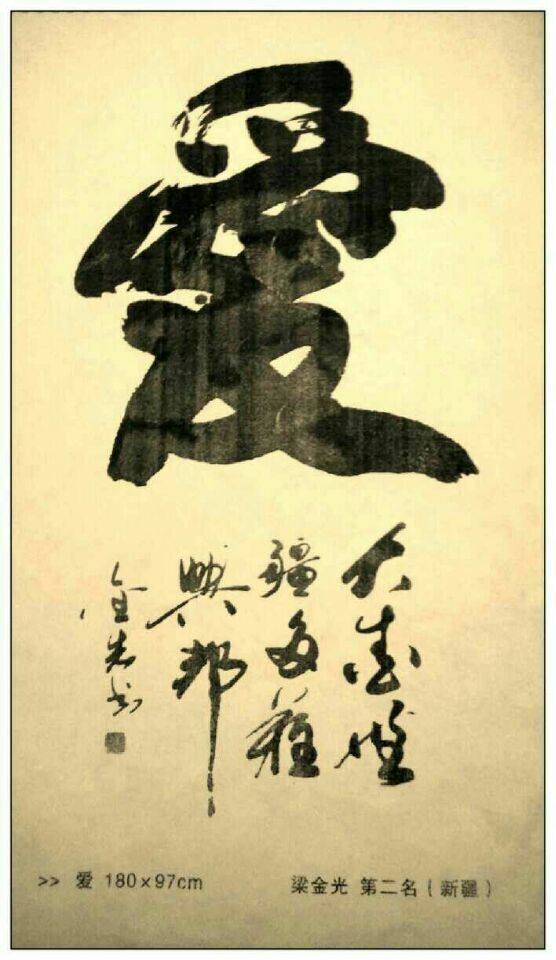 愛
大愛無
疆多難
興邦
金光书
>> 爱 180×97cm
梁金光 第二名（新疆）